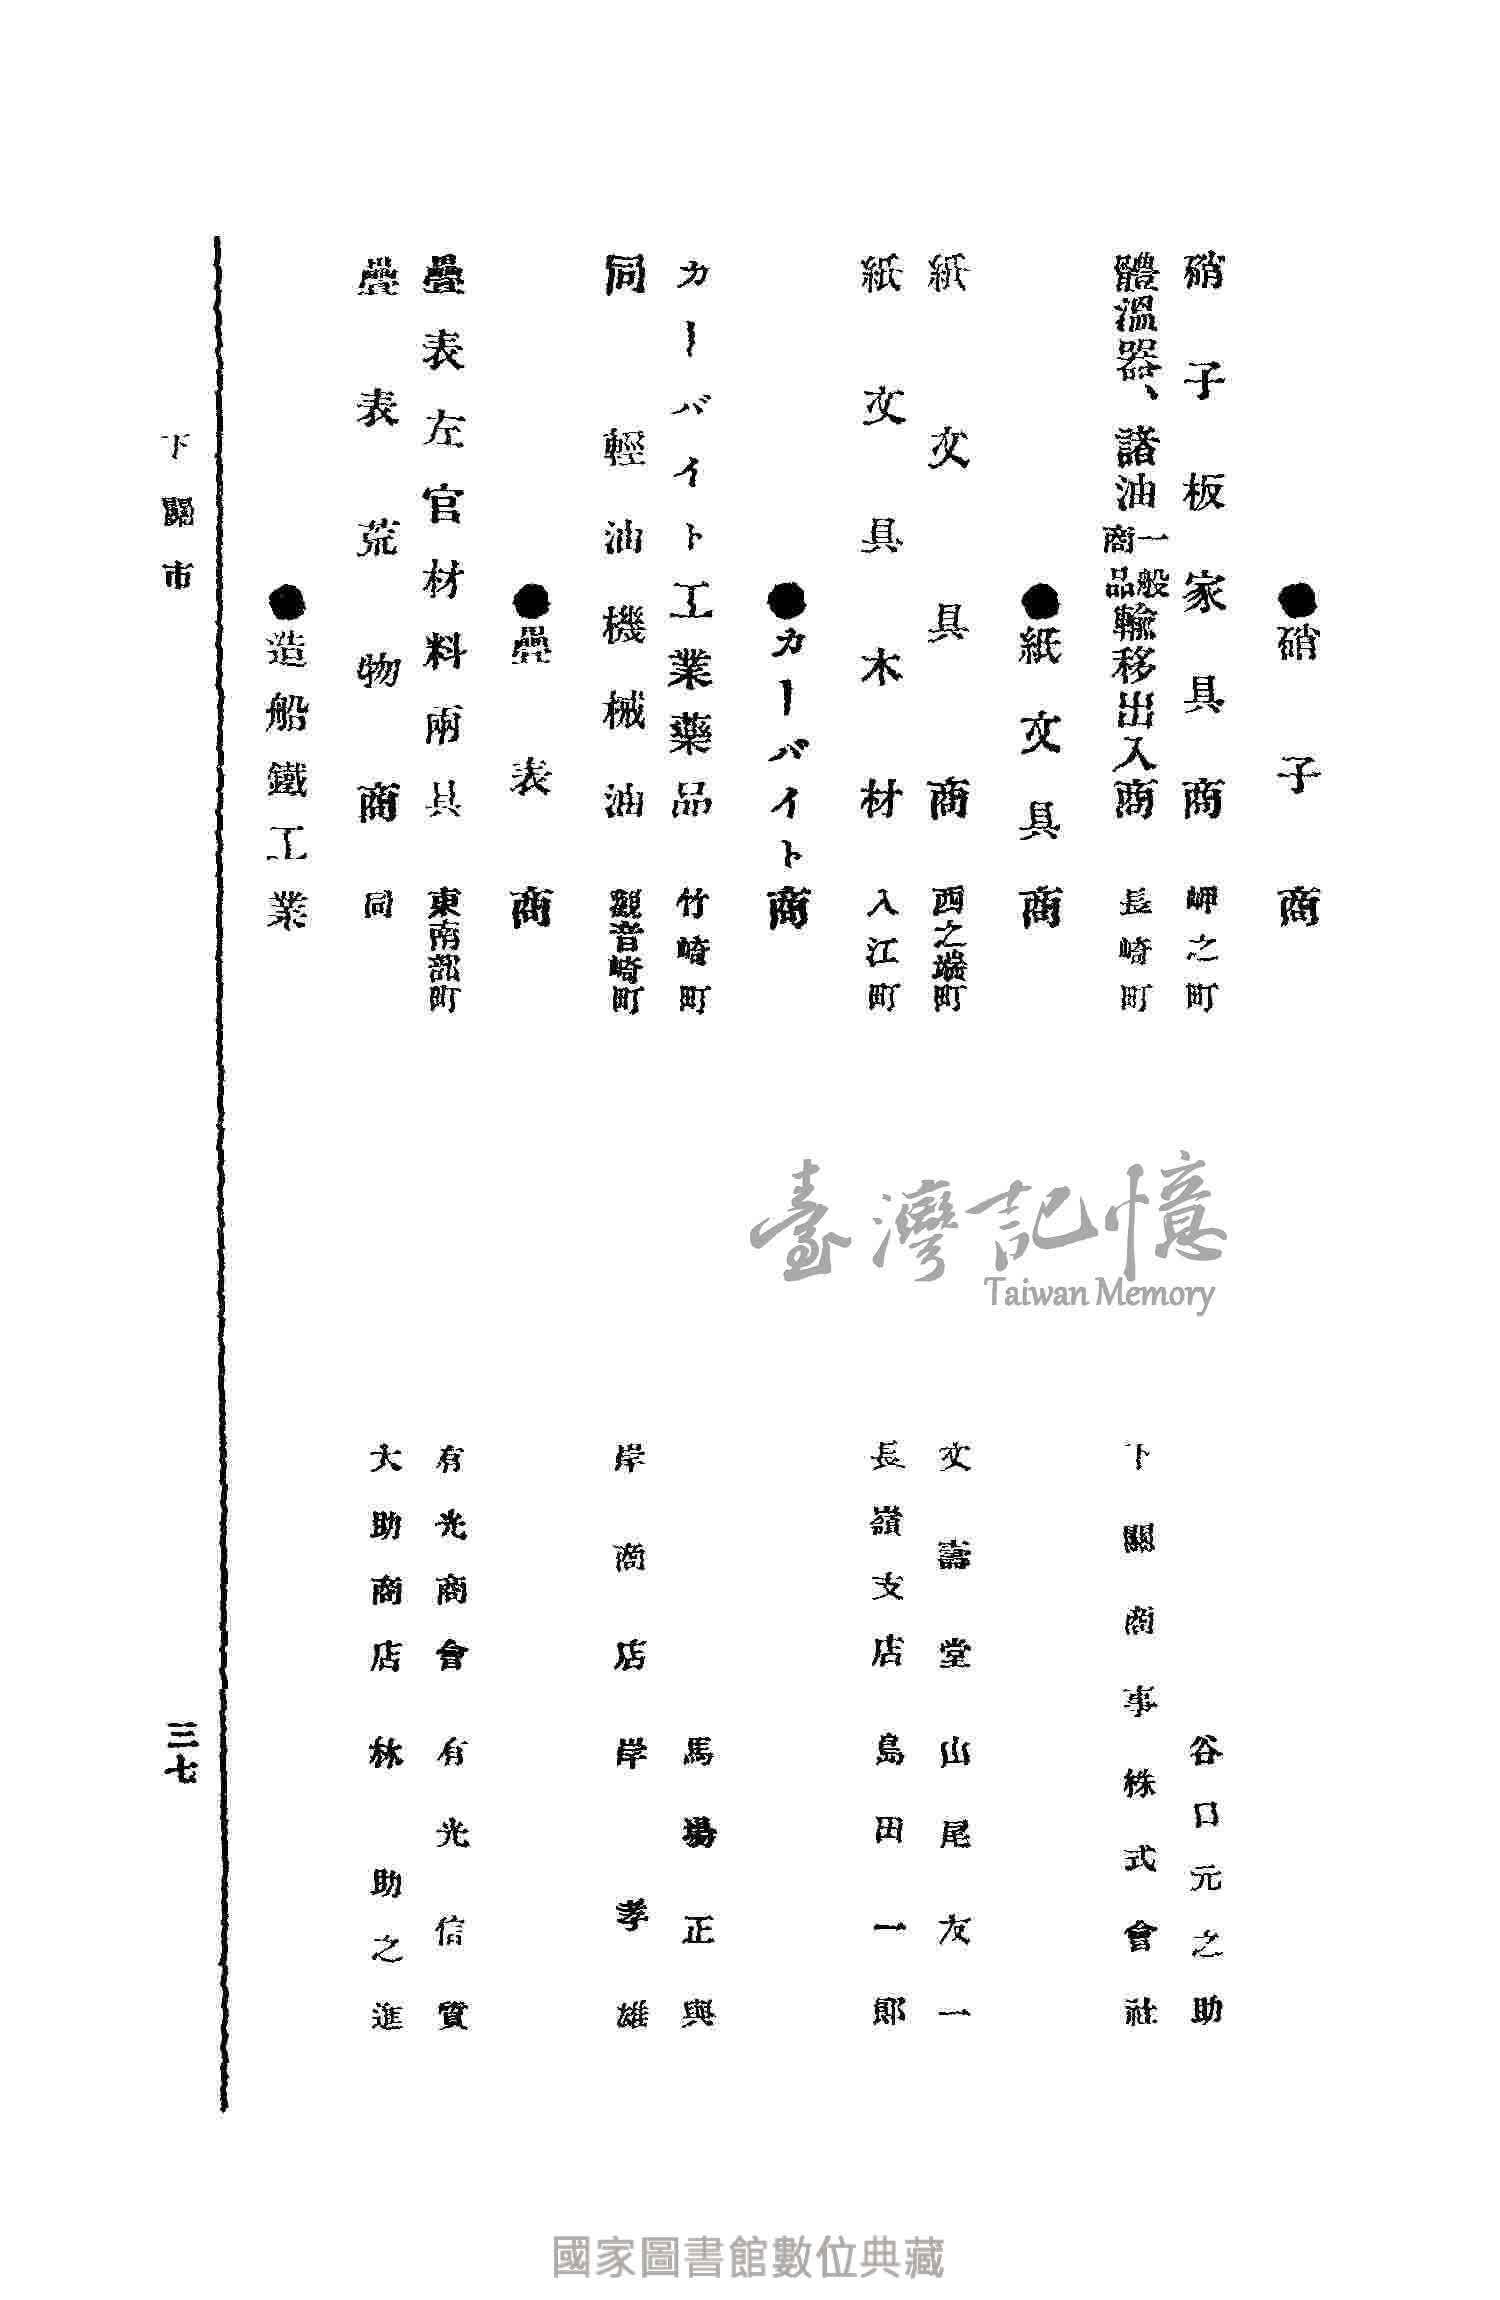 ●硝子商
硝子板家具商 岬之町 谷口元之助
體溫器、諸油一般商品輸移出入商 長崎町 下關商事株式會社
●紙文具商
紙文具商 西之端町 文壽堂 山尾友一
紙文具木材 入江町 長嶺支店 島田一郎
●カーバイト商
カーバイト工業藥品 竹崎町 馬場正與
同 輕油機械油 觀音崎町 岸商店 岸孝雄
●疊表商
疊表左官材料雨具 東南部町 有光商會 有光信質
疊表荒物商 同 大助商店 林助之進
●造船鐵工業
下關市 三七
臺灣記憶
Taiwan Memory
國家圖書館數位典藏